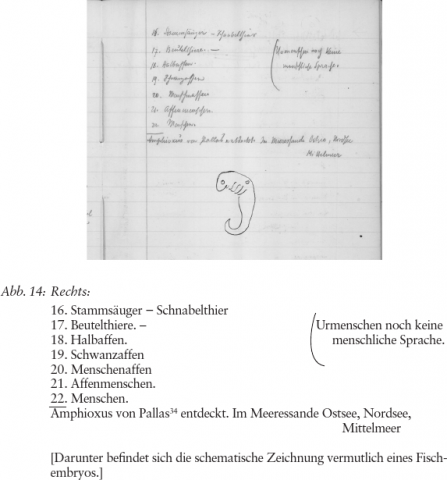 16. Stammsäuger – Schnabelthier
17. Beutelthiere. –
18. Halbaffen.
19. Schwanzaffen
20. Menschenaffen
21. Affenmenschen.
22. Menschen.
Urmenschen noch keine
menschliche Sprache.
Amphioxus von Pallas entdeckt. Im Meeressande Ostsee, Nordsee,
Mittelmeer
Abb. 14: Rechts:
16. Stammsäuger – Schnabelthier
17. Beutelthiere. –
18. Halbaffen.
19. Schwanzaffen
20. Menschenaffen
21. Affenmenschen.
22. Menschen.
Urmenschen noch keine
menschliche Sprache.
Amphioxus von Pallas³⁴ entdeckt. Im Meeressande Ostsee, Nordsee,
Mittelmeer
[Darunter befindet sich die schematische Zeichnung vermutlich eines Fisch-
embryos.]